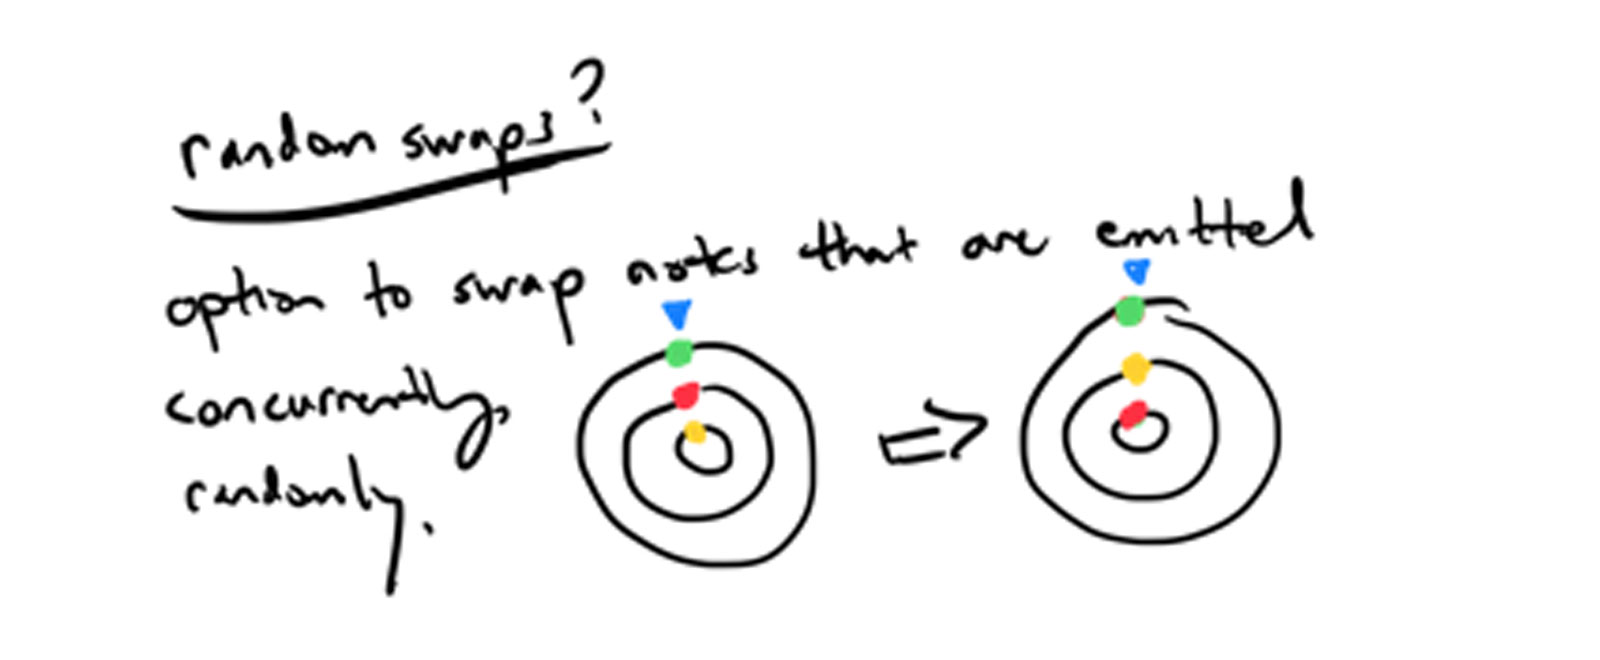 random swaps?
option to swap notes that are emitted
concurrently,
randomly.